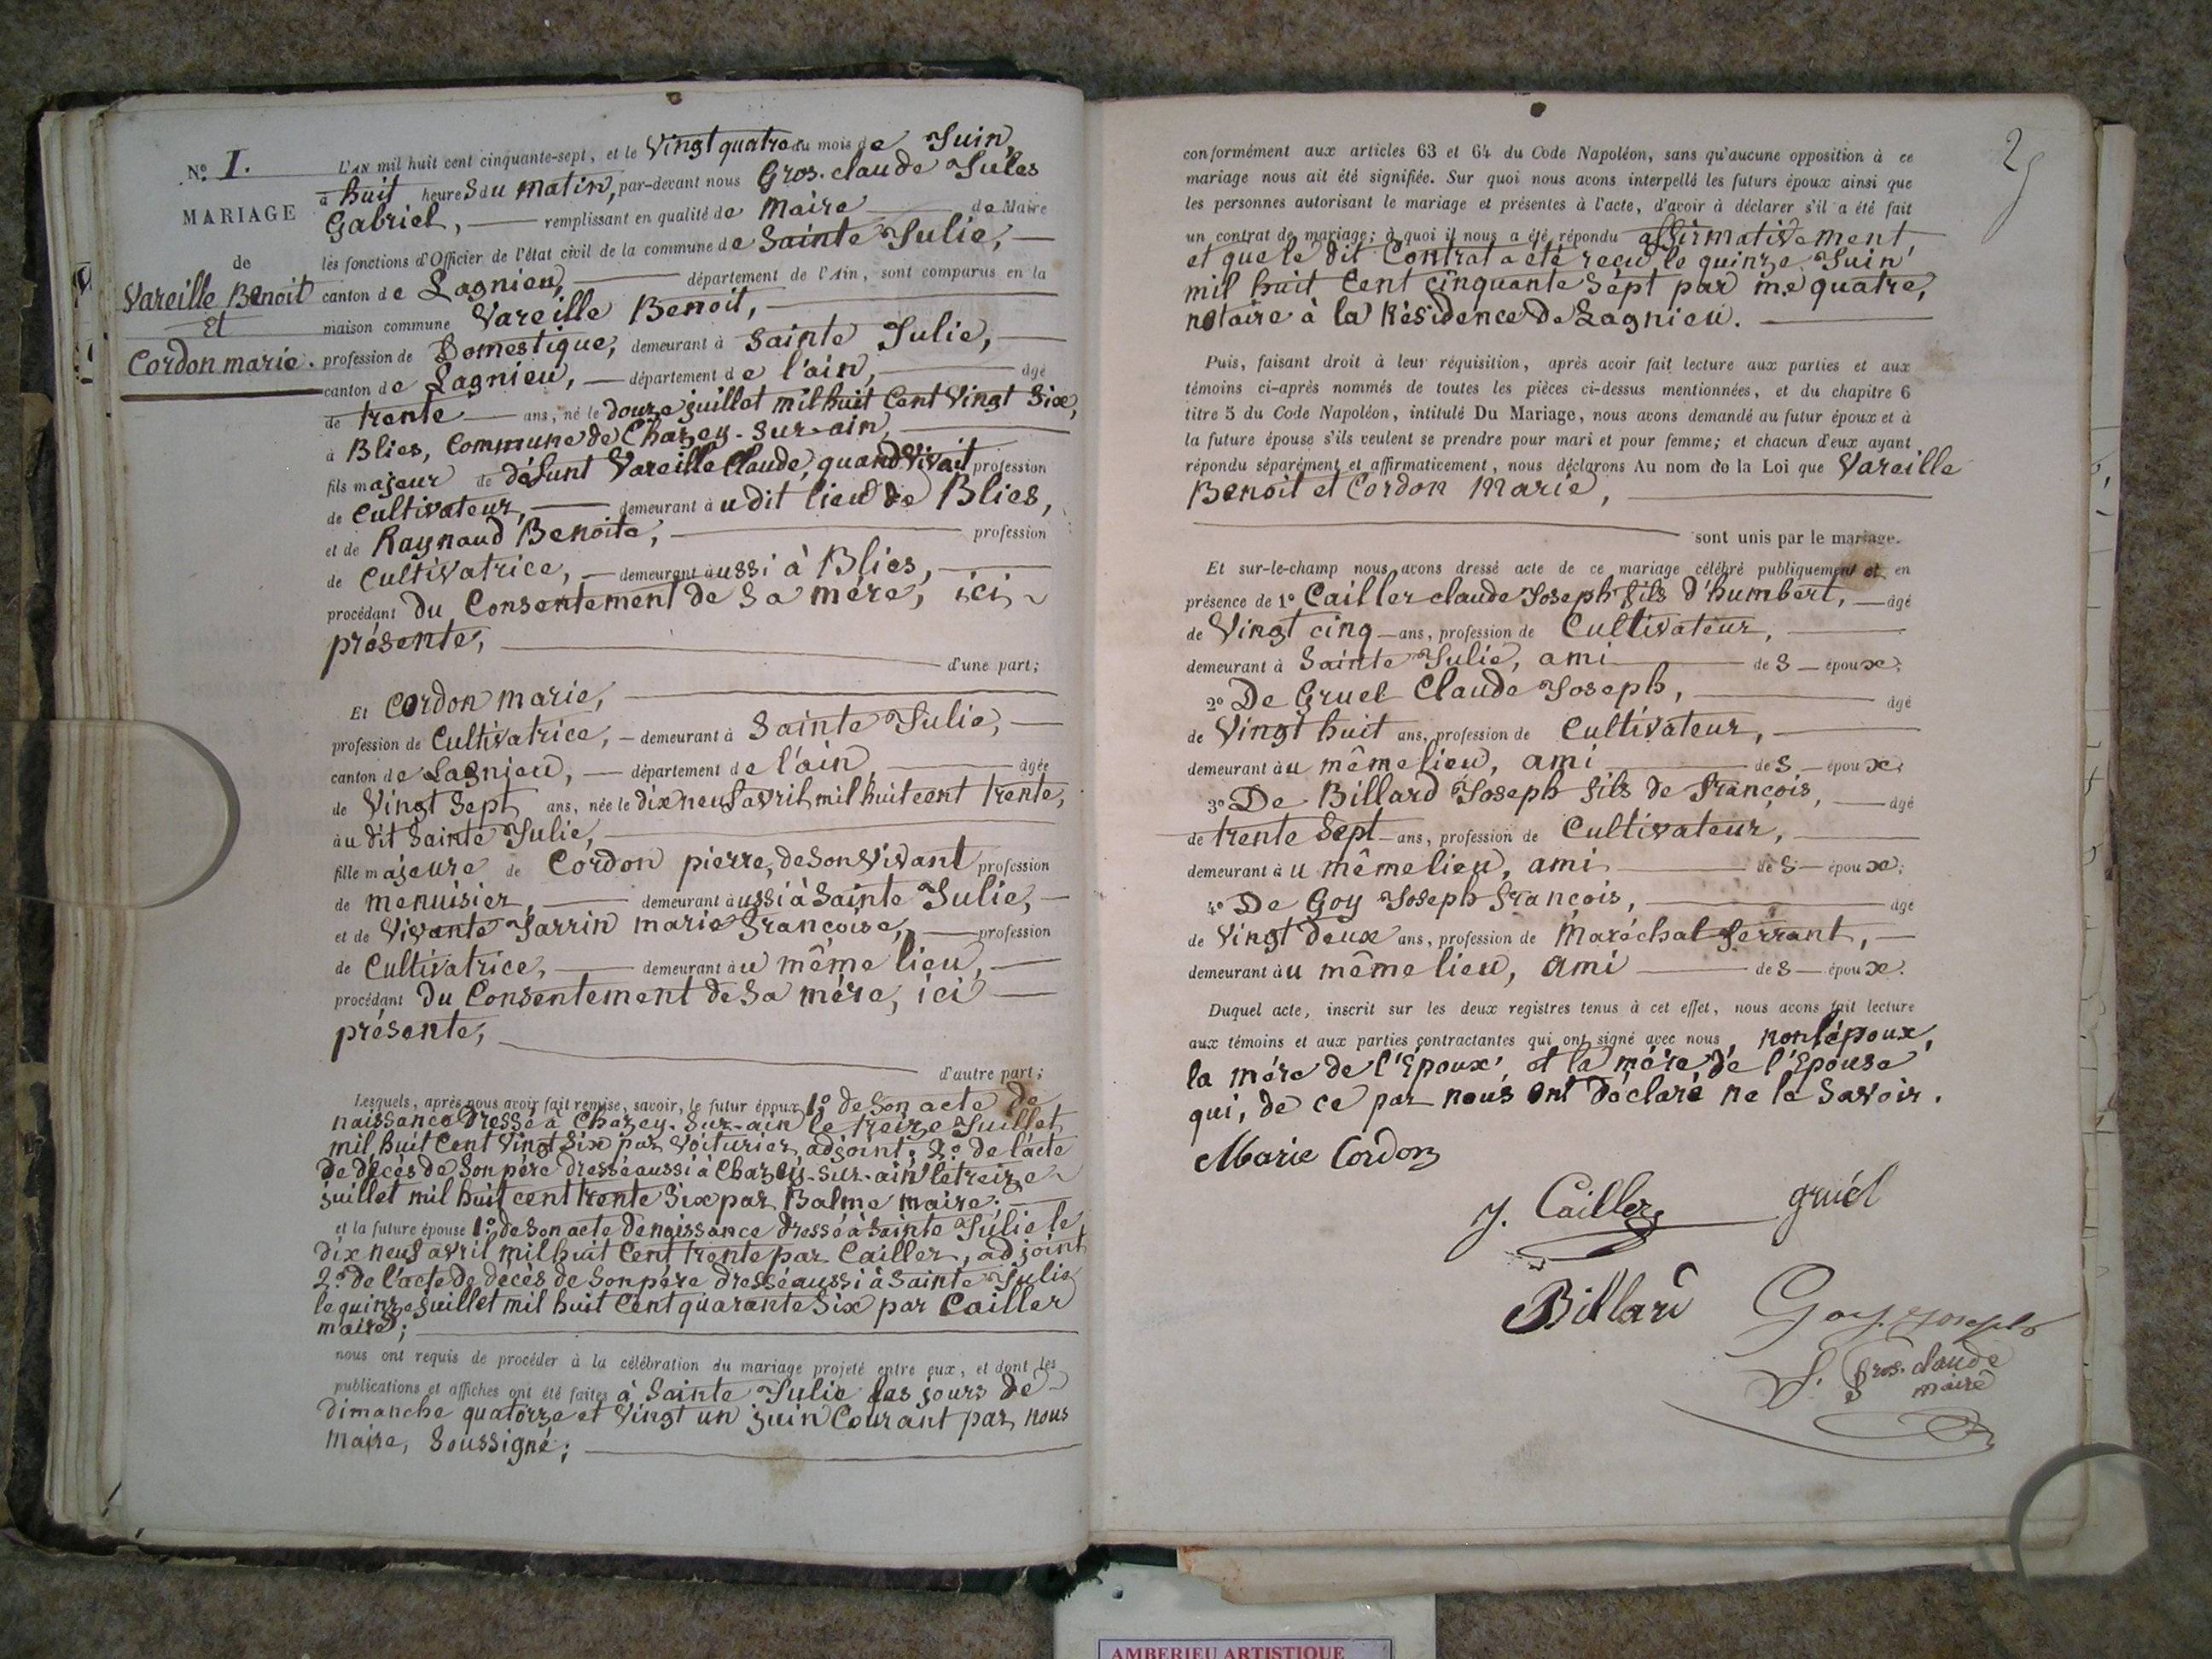 N.º I.
MARIAGE
de
Vareille Benoit
Et
Cordon marie.
L'AN mil huit cent cinquante-sept, et le Vingt quatre du mois de Juin,
à huit heures du matin, par-devant nous Gros. claude Jules
Gabriel, remplissant en qualité de Maire de Maire
les fonctions d'Officier de l'état civil de la commune de Sainte Julie,
canton de Lagnieu, département de l'Ain, sont comparus en la
maison commune Vareille Benoit,
profession de Domestique, demeurant à Sainte Julie,
canton de Lagnieu, département de l'ain, âgé
de trente ans, né le douze juillet mil huit Cent Vingt Six,
à Blies, Commune de Chazey-sur-ain,
fils majeur de défunt Vareille Claude, quand Vivait profession
de Cultivateur, demeurant àu dit lieu de Blies,
et de Raynaud Benoite, profession
de Cultivatrice, demeurant àussi à Blies,
procédant du Consentement de Sa mére, ici
présente, d'une part;
Et Cordon marie,
profession de Cultivatrice, demeurant à Sainte Julie,
canton de Lagnieu, département de l'ain, âgée
de Vingt Sept ans, née le dix neuf avril mil huit cent trente,
àu dit Sainte Julie,
fille majeure de Cordon pierre, de Son Vivant profession
de menuisier, demeurant àussi à Sainte Julie,
et de Vivante Jarrin marie françoise, profession
de Cultivatrice, demeurant àu même lieu,
procédant du Consentement de Sa mére, ici
présente,
d'autre part;
Lesquels, après nous avoir fait remise, savoir, le futur époux 1.º de Son acte de
naissance Dressé à Chazey-Sur-ain le treize Juillet
mil huit Cent Vingt Six par Voiturier, adjoint; 2.º de l'acte
de décès de Son père dressé aussi à Chazey-sur-ain le treize
juillet mil huit cent trente Six par Balme maire;
et la future épouse 1.º de Son acte de naissance dressé à Sainte Julie le
dix neuf avril mil huit Cent trente par Cailler, adjoint
2.º de l'acte de décès de Son père dressé aussi à Sainte Julie
le quinze juillet mil huit Cent quarante Six par Cailler
maire;
nous ont requis de procéder à la célébration du mariage projeté entre eux, et dont les
publications et affiches ont été faites à Sainte Julie les jours de
dimanche quatorze et Vingt un juin Courant par nous
Maire, Soussigné;
conformément aux articles 63 et 64 du Code Napoléon, sans qu'aucune opposition à ce
mariage nous ait été signifiée. Sur quoi nous avons interpellé les futurs époux ainsi que
les personnes autorisant le mariage et présentes à l'acte, d'avoir à déclarer s'il a été fait
un contrat de mariage; à quoi il nous a été répondu affirmativement,
et que le dit Contrat a été reçu le quinze Juin
mil huit Cent cinquante Sept par me quatre,
notaire à la Résidence de Lagnieu.
Puis, faisant droit à leur réquisition, après avoir fait lecture aux parties et aux
témoins ci-après nommés de toutes les pièces ci-dessus mentionnées, et du chapitre 6
titre 5 du Code Napoléon, intitulé Du Mariage, nous avons demandé au futur époux et à
la future épouse s'ils veulent se prendre pour mari et pour femme; et chacun d'eux ayant
répondu séparément et affirmativement, nous déclarons Au nom de la Loi que Vareille
Benoit et Cordon Marie,
sont unis par le mariage.
Et sur-le-champ nous avons dressé acte de ce mariage célébré publiquement et en
présence de 1º Cailler claude Joseph fils d'humbert, âgé
de Vingt cinq ans, profession de Cultivateur,
demeurant à Sainte Julie, ami des époux;
2º De Gruel Claude Joseph, âgé
de Vingt huit ans, profession de Cultivateur,
demeurant àu même lieu, ami des époux;
3º De Billard Joseph fils de françois, âgé
de trente Sept ans, profession de Cultivateur,
demeurant àu même lieu, ami des époux;
4º De Goy Joseph françois, âgé
de Vingt deux ans, profession de Maréchal ferrant,
demeurant àu même lieu, ami des époux.
Duquel acte, inscrit sur les deux registres tenus à cet effet, nous avons fait lecture
aux témoins et aux parties contractantes qui ont signé avec nous, non l'époux,
la mére de l'Époux, et la mére de l'Epouse
qui, de ce par nous ont Déclaré ne le Savoir.
Marie Cordon
J. Cailler gruél
Billard Goy Joseph
J. Gros. claude
maire
AMBERIEU ARTISTIQUE